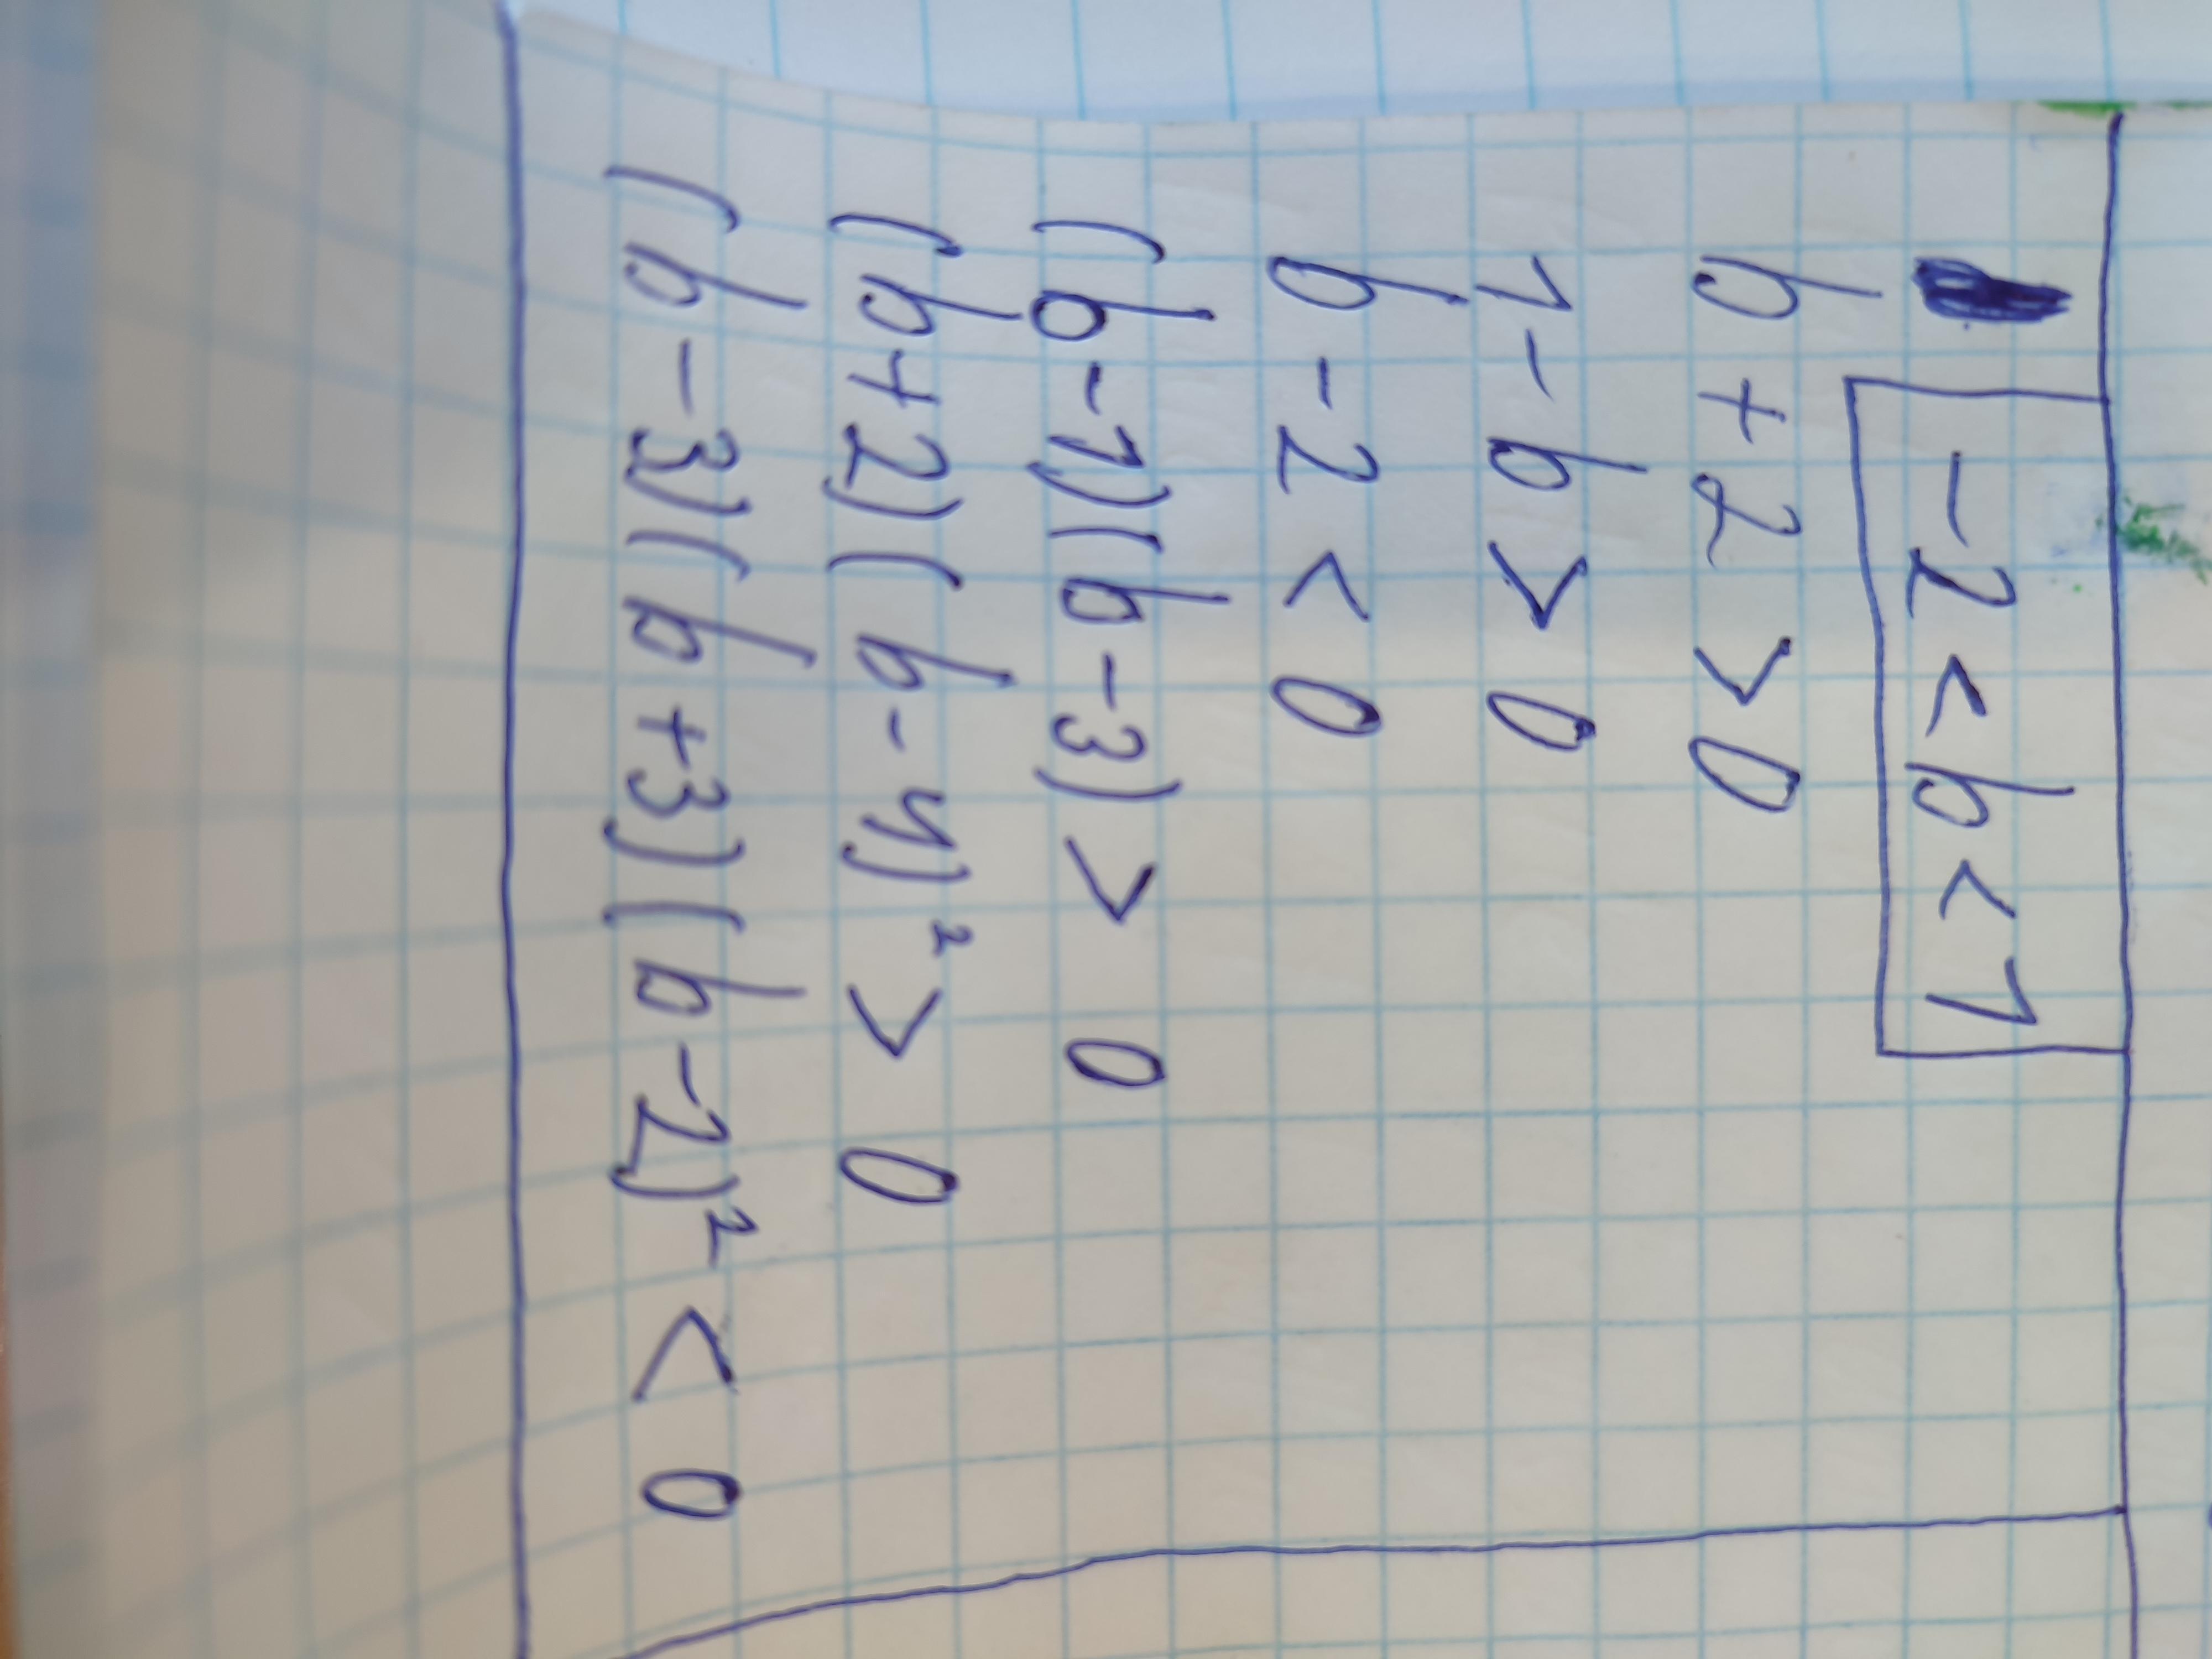 -2 < b < 1
b + 2 > 0
1 - b > 0
b - 2 < 0
(b - 1)(b - 3) > 0
(b + 2)(b - 4)² > 0
(b - 3)(b + 3)(b - 2)² < 0